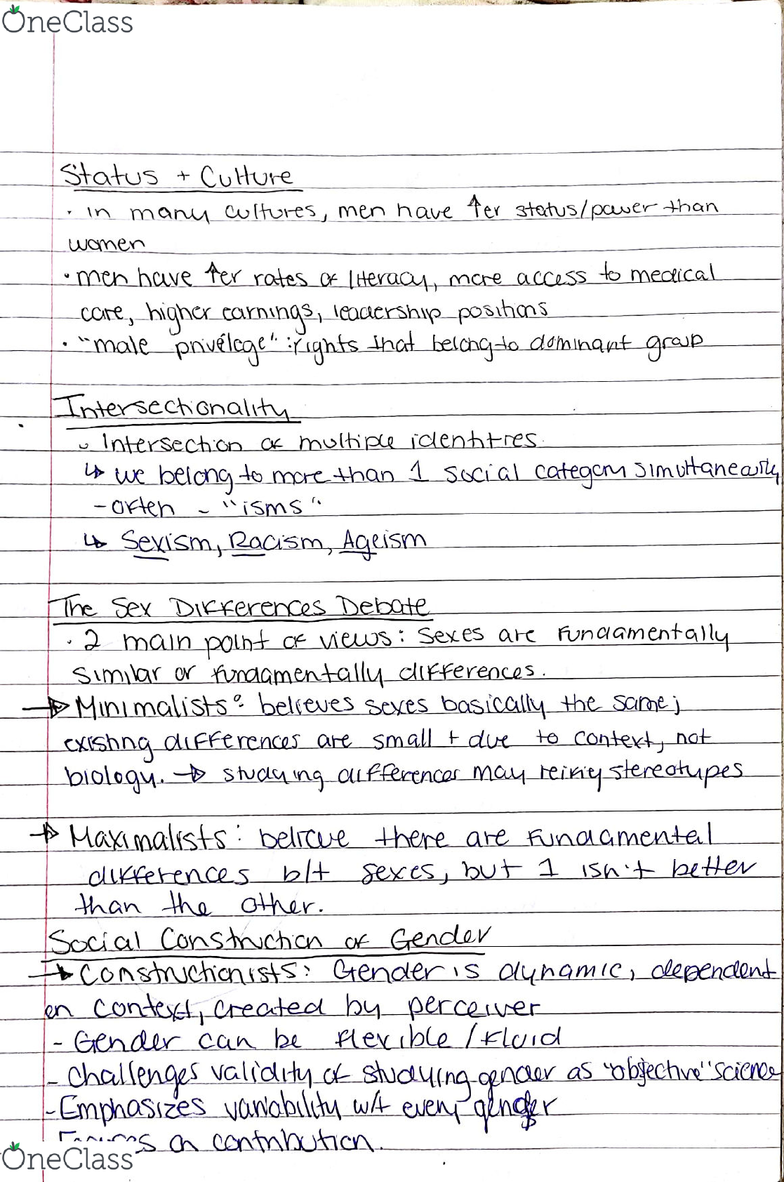 OneClass
Status + Culture
· in many cultures, men have ↑er status/power than
women
· men have ↑er rates of literacy, more access to medical
care, higher earnings, leadership positions
· "male privelege": rights that belong to dominant group
Intersectionality
Intersection of multiple identities
↳ we belong to more than 1 social category simultaneously
- often - "isms"
↳ Sexism, Racism, Ageism
The Sex Differences Debate
· 2 main point of views: sexes are fundamentally
similar or fundamentally differences.
→ Minimalists: believes sexes basically the same;
existing differences are small + due to context, not
biology. → studying differences may reify stereotypes
→ Maximalists: believe there are fundamental
differences b/t sexes, but 1 isn't better
than the other.
Social Construction of Gender
→ Constructionists: Gender is dynamic, dependent
on context, created by perceiver
- Gender can be flexible / fluid
- Challenges validity of studying gender as "objective" science
- Emphasizes variability w/t every gender
on contribution.
OneClass